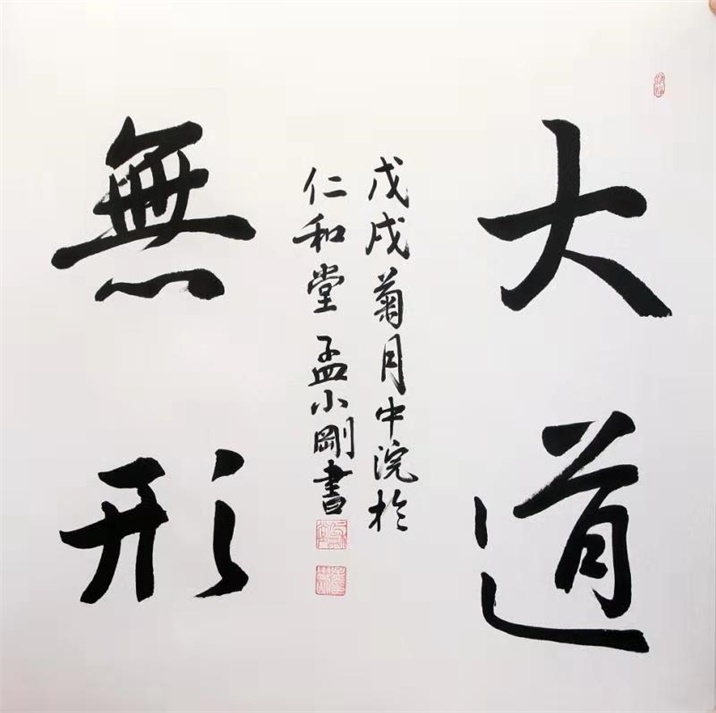 大道
戊戌菊月中浣於
仁和堂孟小剛書
無形